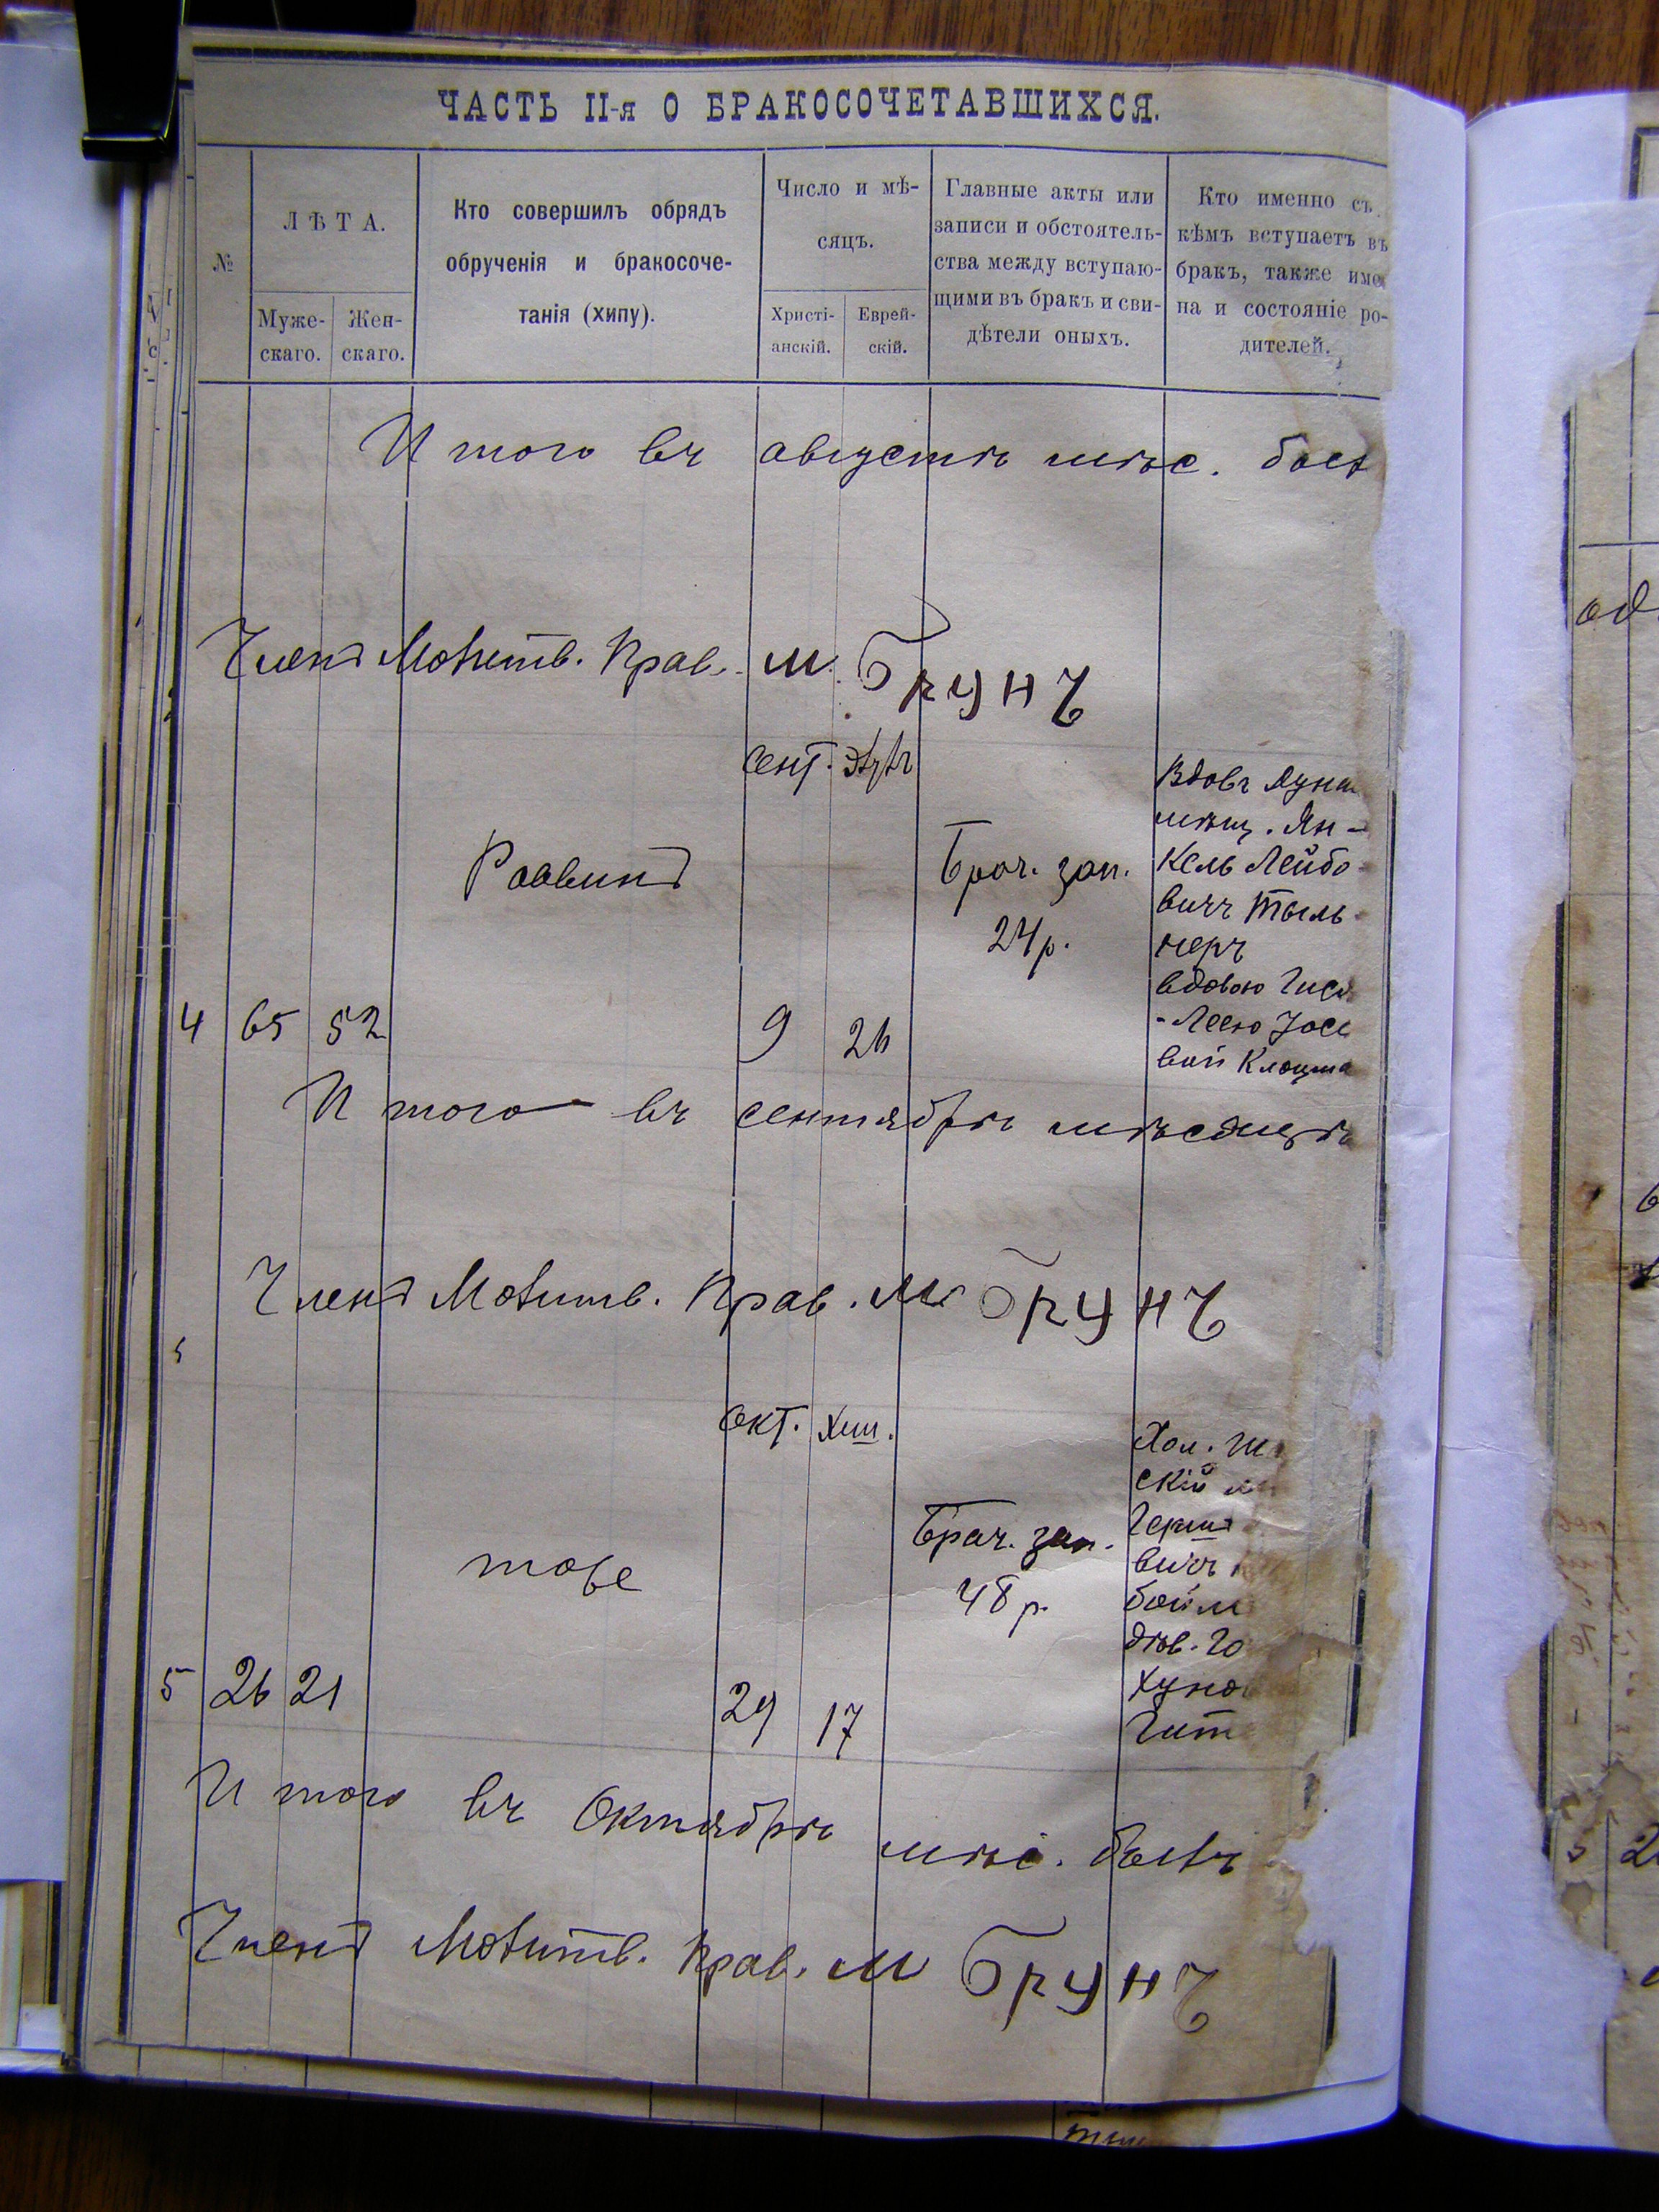 ЧАСТЬ II-я О БРАКОСОЧЕТАВШИХСЯ.
№
ЛѢТА.
Муже-
скаго.
Жен-
скаго.
Кто совершилъ обрядъ
обрученія и бракосоче-
танія (хипу).
Число и мѣ-
сяцъ.
Христі-
анскій.
Еврей-
скій.
Главные акты или
записи и обстоятель-
ства между вступаю-
щими въ бракъ и сви-
дѣтели оныхъ.
Кто именно съ
кѣмъ вступаетъ въ
бракъ, также име
на и состояніе ро-
дителей.
Итого въ августѣ мѣс.
Членъ Молитв. Прав. М. Брунъ
Сент.
4 65 52
Раввинъ
9 26
Брач. зап.
24 р.
Вдовъ Дуна
мѣщ. Ян-
кель Лейбо-
вичъ Тыль
неръ
вдовою
Лею
вой
Итого въ сентябрѣ мѣсяцѣ
Членъ Молитв. Прав. М Брунъ
Окт. Хеш.
5 26 21
тоже
29 17
Брач. зап.
48 р.
Хол.
скій
Герш
вичъ
бойм
дѣв.
Хуно
Гит
Итого въ Октябрѣ мѣс. былъ
Членъ Молитв. Прав. М Брунъ